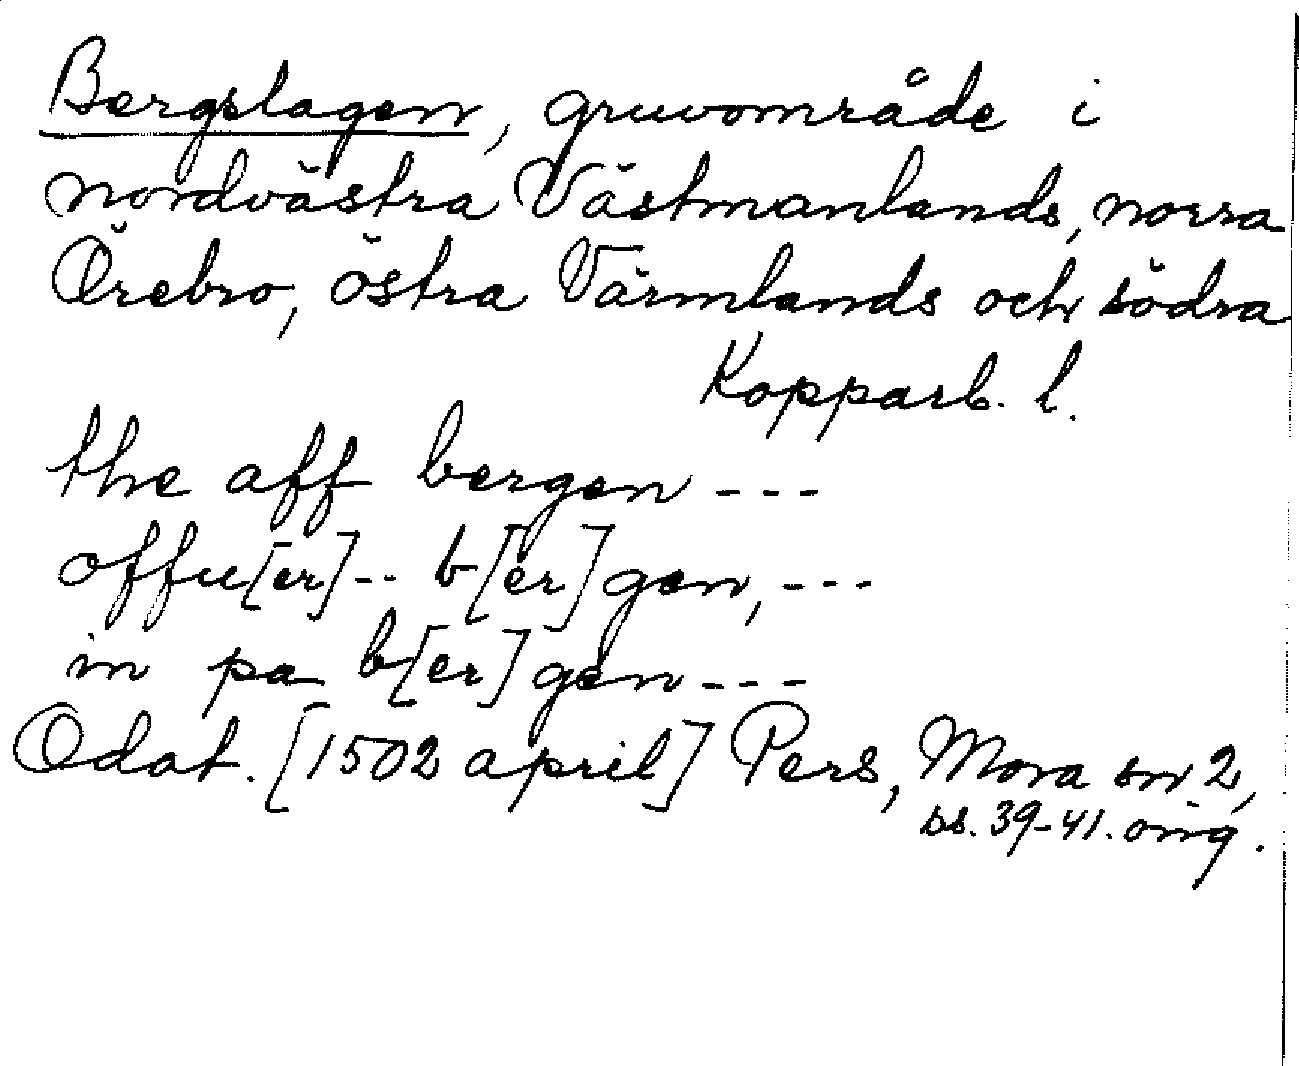 Bergslagen, gruvområde i
nordvästra Västmanlands, norra
Örebro, östra Värmlands och södra
Kopparb. l.
the aff bergen ---
offu[er]-- b[er]gen, ---
in pa b[er]gen ---
Odat. [1502 april] Pers, Mora sn 2,
ss. 39-41. orig.